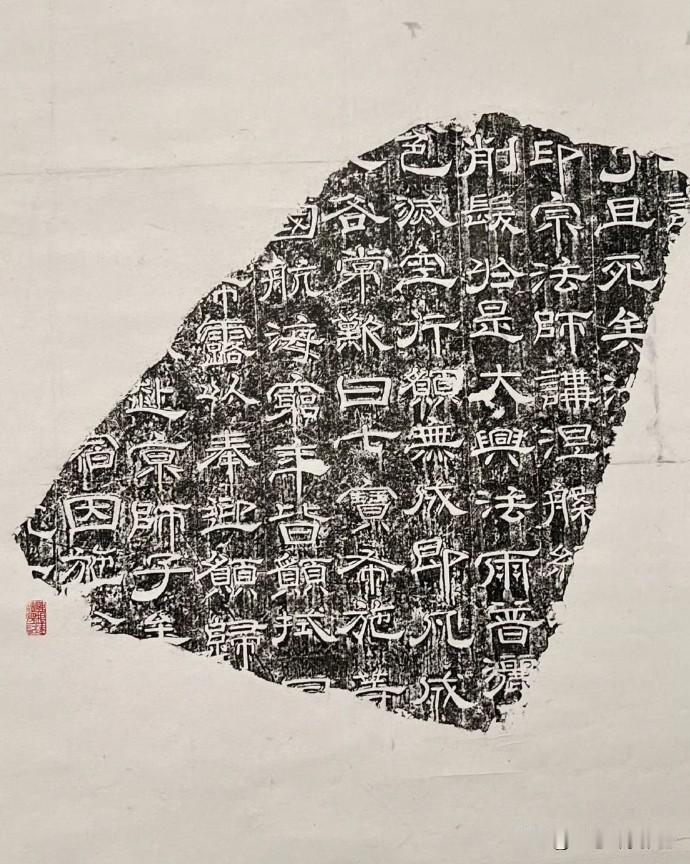 且死矣
印宗法師講涅槃經
削髮於是大興法雨普灑
色滅空行願無成即凡成
各常歎曰七寶布施等
國航海窮年皆願拭
靈以奉迎願歸
赴京師子
因施